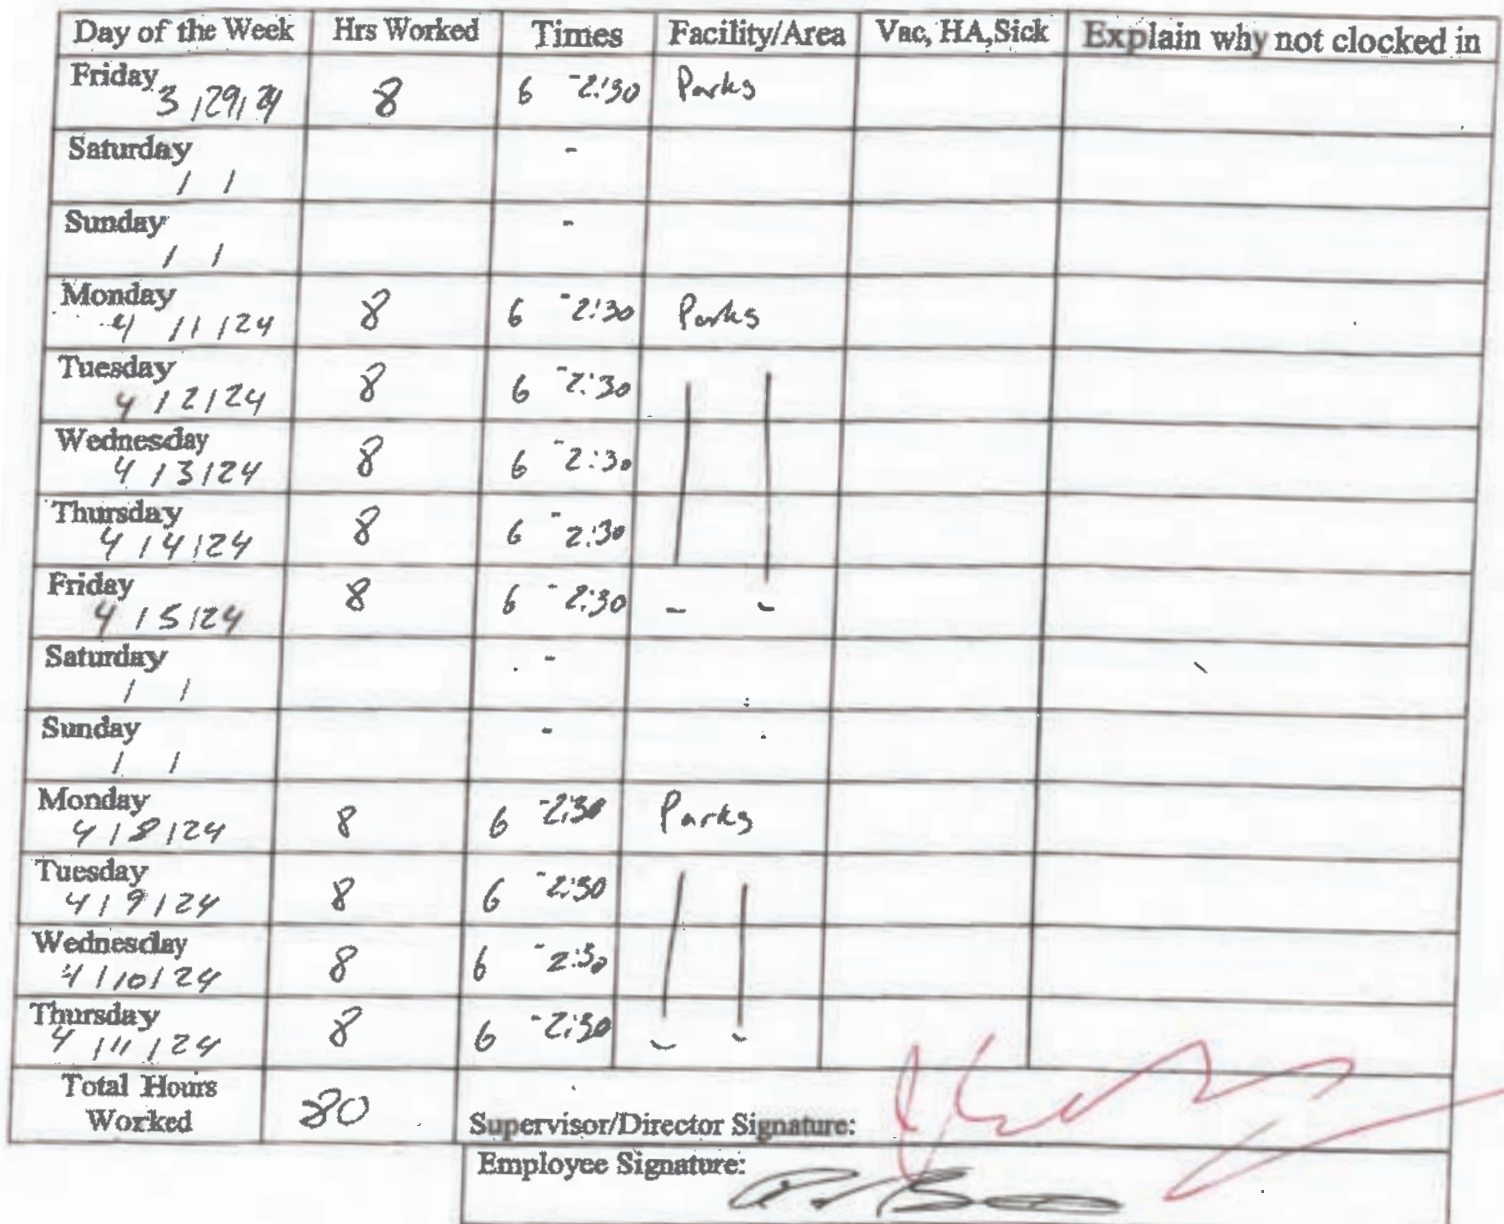 Day of the Week Hrs Worked Times Facility/Area Vac, HA,Sick Explain why not clocked in
Friday
3 /29/24 8 6 -2:30 Parks
Saturday -
/ /
Sunday -
/ /
Monday
4 /1/24 8 6 -2:30 Parks
Tuesday
4 /2/24 8 6 -2:30
Wednesday
4 /3/24 8 6 -2:30
Thursday
4 /4/24 8 6 -2:30
Friday
4 /5/24 8 6 -2:30 - -
Saturday -
/ /
Sunday -
/ /
Monday
4/8/24 8 6 -2:30 Parks
Tuesday
4/9/24 8 6 -2:30
Wednesday
4/10/24 8 6 -2:30
Thursday
4/11/24 8 6 -2:30 - -
Total Hours
Worked 80 Supervisor/Director Signature:
Employee Signature: